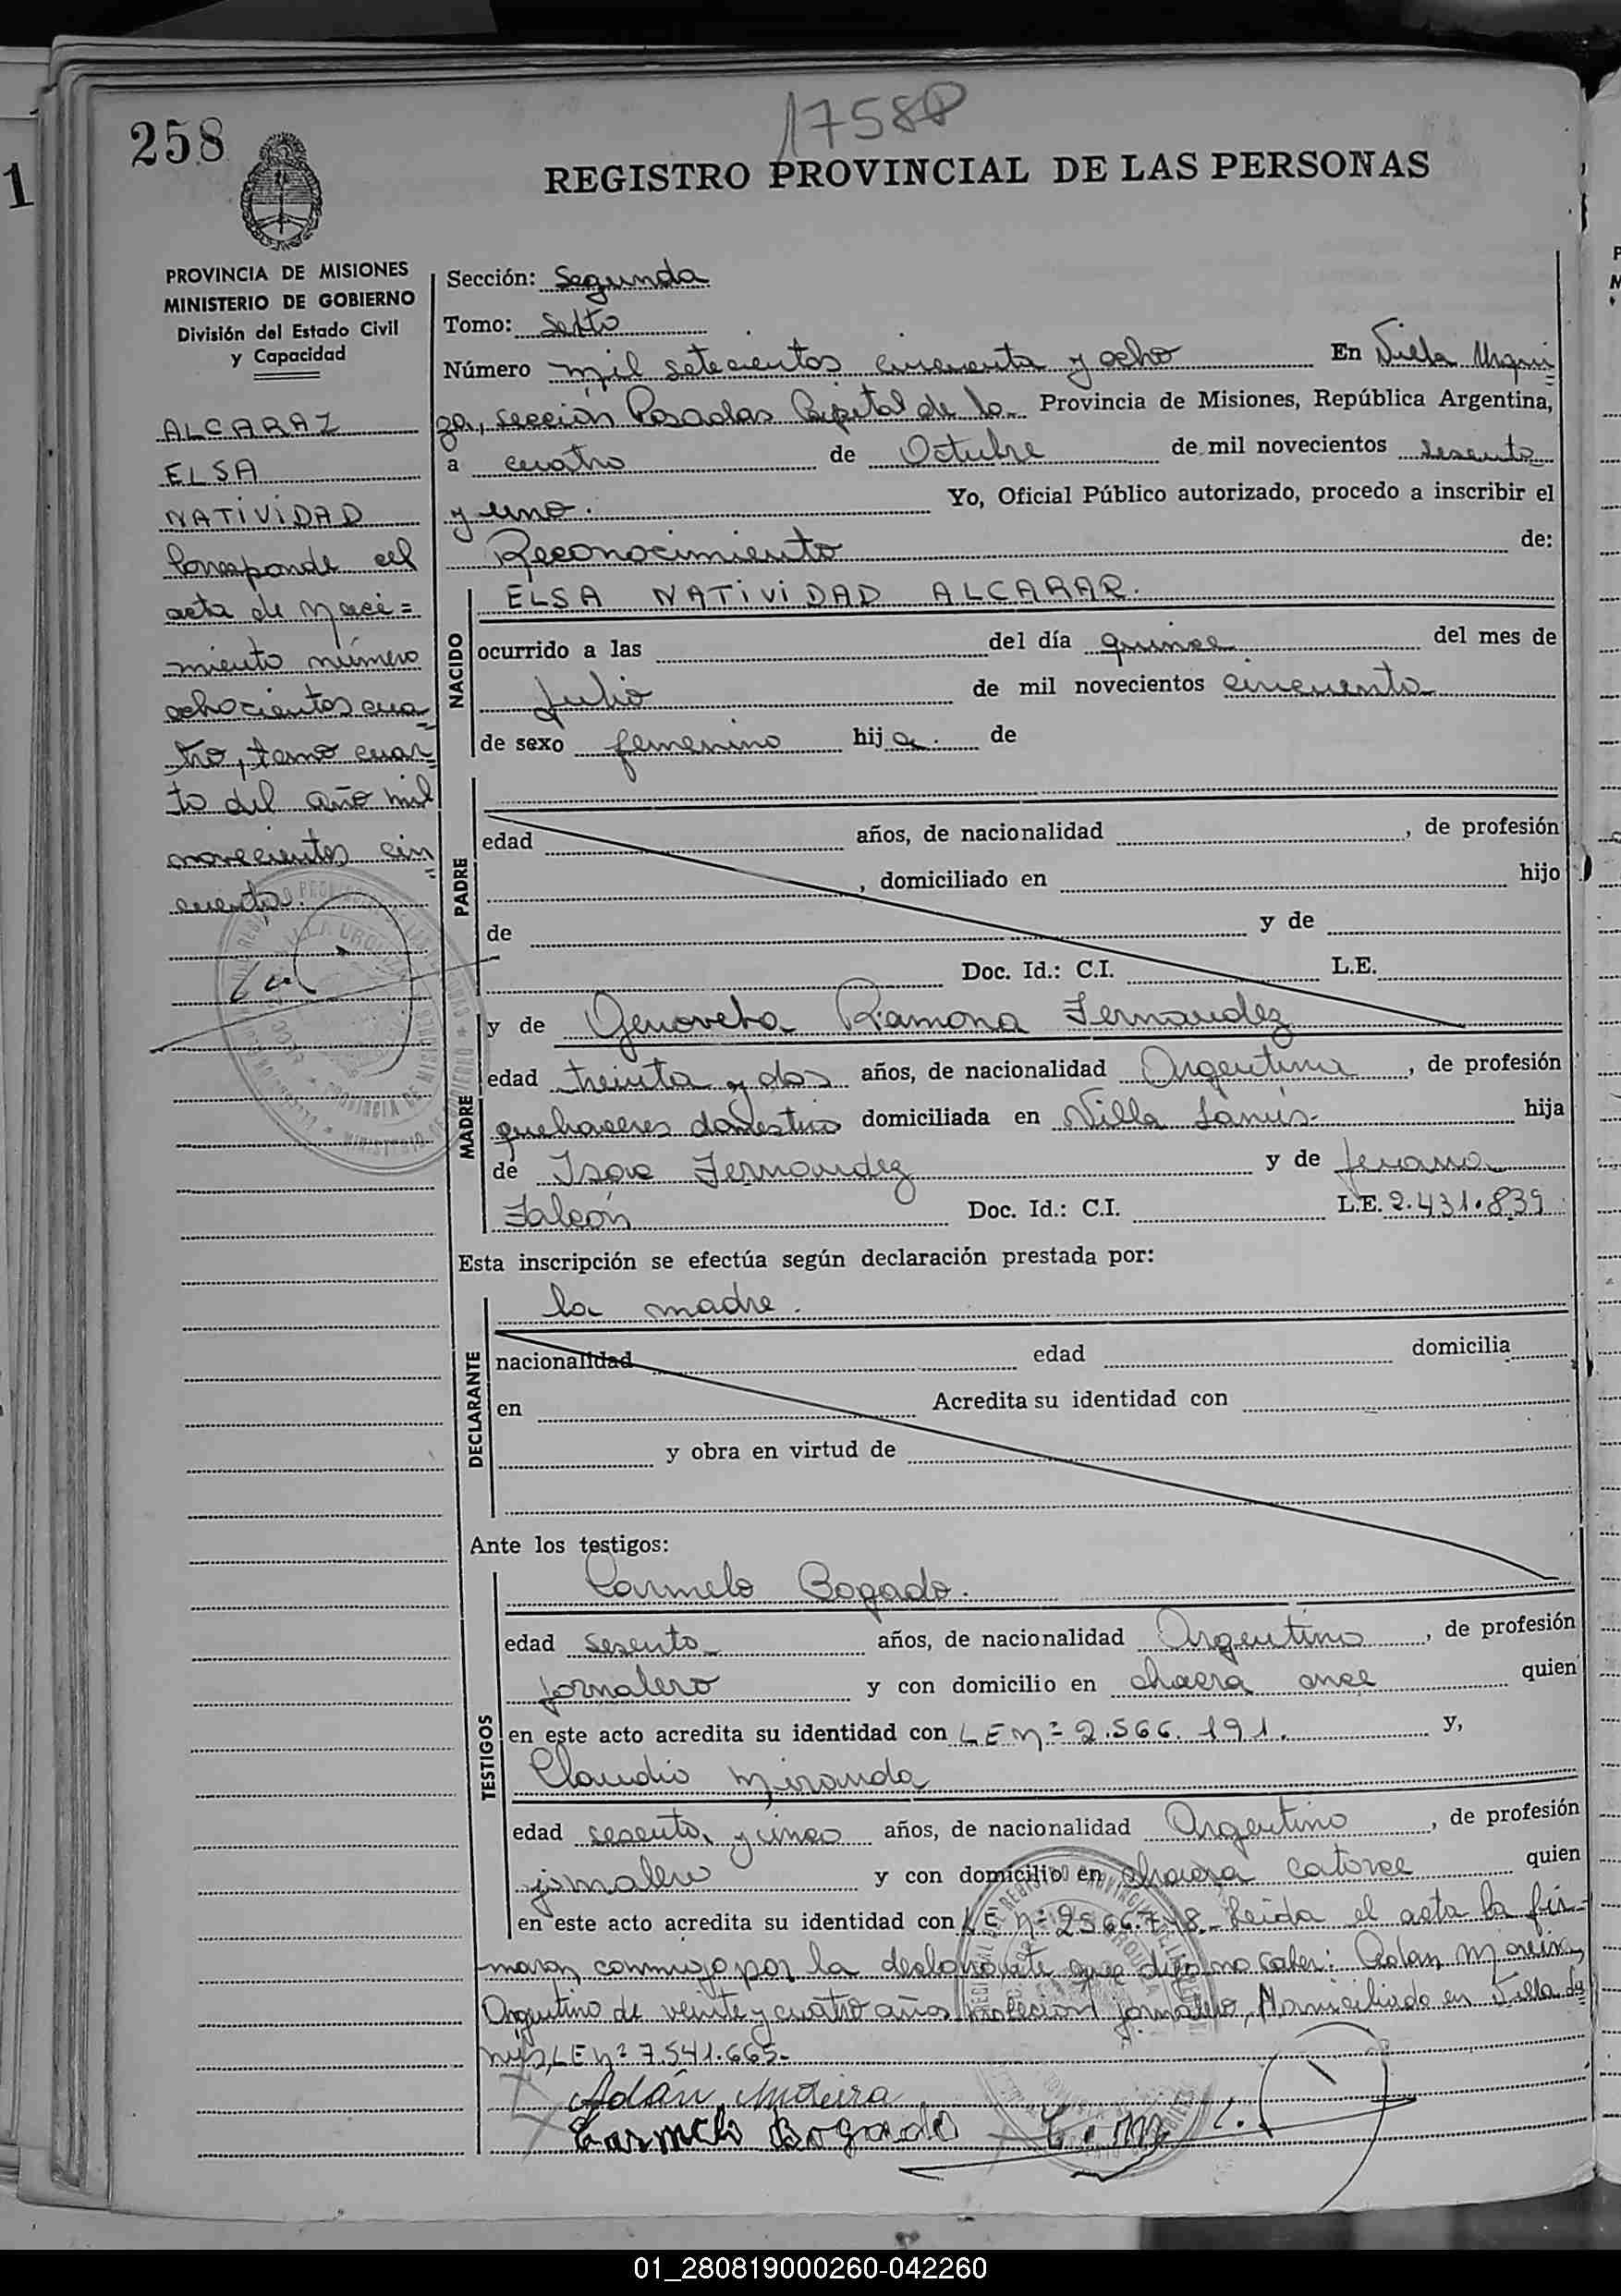 17588
258
REGISTRO PROVINCIAL DE LAS PERSONAS
1
PROVINCIA DE MISIONES
MINISTERIO DE GOBIERNO
División del Estado Civil
y Capacidad
ALCARAZ
ELSA
NATIVIDAD
Corresponde al
acta de Naci=
miento número
ochocientos cua
tro, tomo cuar
to del año mil
novecientos cin
cuenta.
Sección: Segunda
Tomo: Sexto
Número mil setecientos cincuenta y ocho En Villa Urqui
za, sección Posadas Capital de la Provincia de Misiones, República Argentina,
a cuatro de Octubre de mil novecientos sesenta
y uno. Yo, Oficial Público autorizado, procedo a inscribir el
Reconocimiento de:
NACIDO
ELSA NATIVIDAD ALCARAR.
ocurrido a las del día quince del mes de
Julio de mil novecientos cincuenta
de sexo femenino hija. de
PADRE
edad años, de nacionalidad , de profesión
, domiciliado en hijo
de y de
Doc. Id.: C.I. L.E.
MADRE
y de Genoveba Ramona Fernandez
edad treinta y dos años, de nacionalidad Argentina, de profesión
quehaceres domestico domiciliada en Villa Lanús hija
de Fernandez y de
Falcón Doc. Id.: C.I. L.E. 2.431.839
Esta inscripción se efectúa según declaración prestada por:
DECLARANTE
la madre.
nacionalidad edad domicilia
en Acredita su identidad con
y obra en virtud de
Ante los testigos:
TESTIGOS
Carmelo Bogado.
edad sesenta años, de nacionalidad Argentino, de profesión
jornalero y con domicilio en chacra once quien
en este acto acredita su identidad con L E Nº 2.566.191. y,
Claudio Miranda
edad sesenta y cinco años, de nacionalidad Argentino, de profesión
jornalero y con domicilio en chacra catorce quien
en este acto acredita su identidad con L E Nº 2566.748. Leida el acta la fir-
maran conmigo por la declarante que dijo no saber: Adan Moreira,
Argentino de veinte y cuatro años profecion jornalero, Domiciliado en Villa La
nus, L E Nº 7.541.665.
Adán Moreira
Carmelo Bogado C. M.
01_280819000260-042260